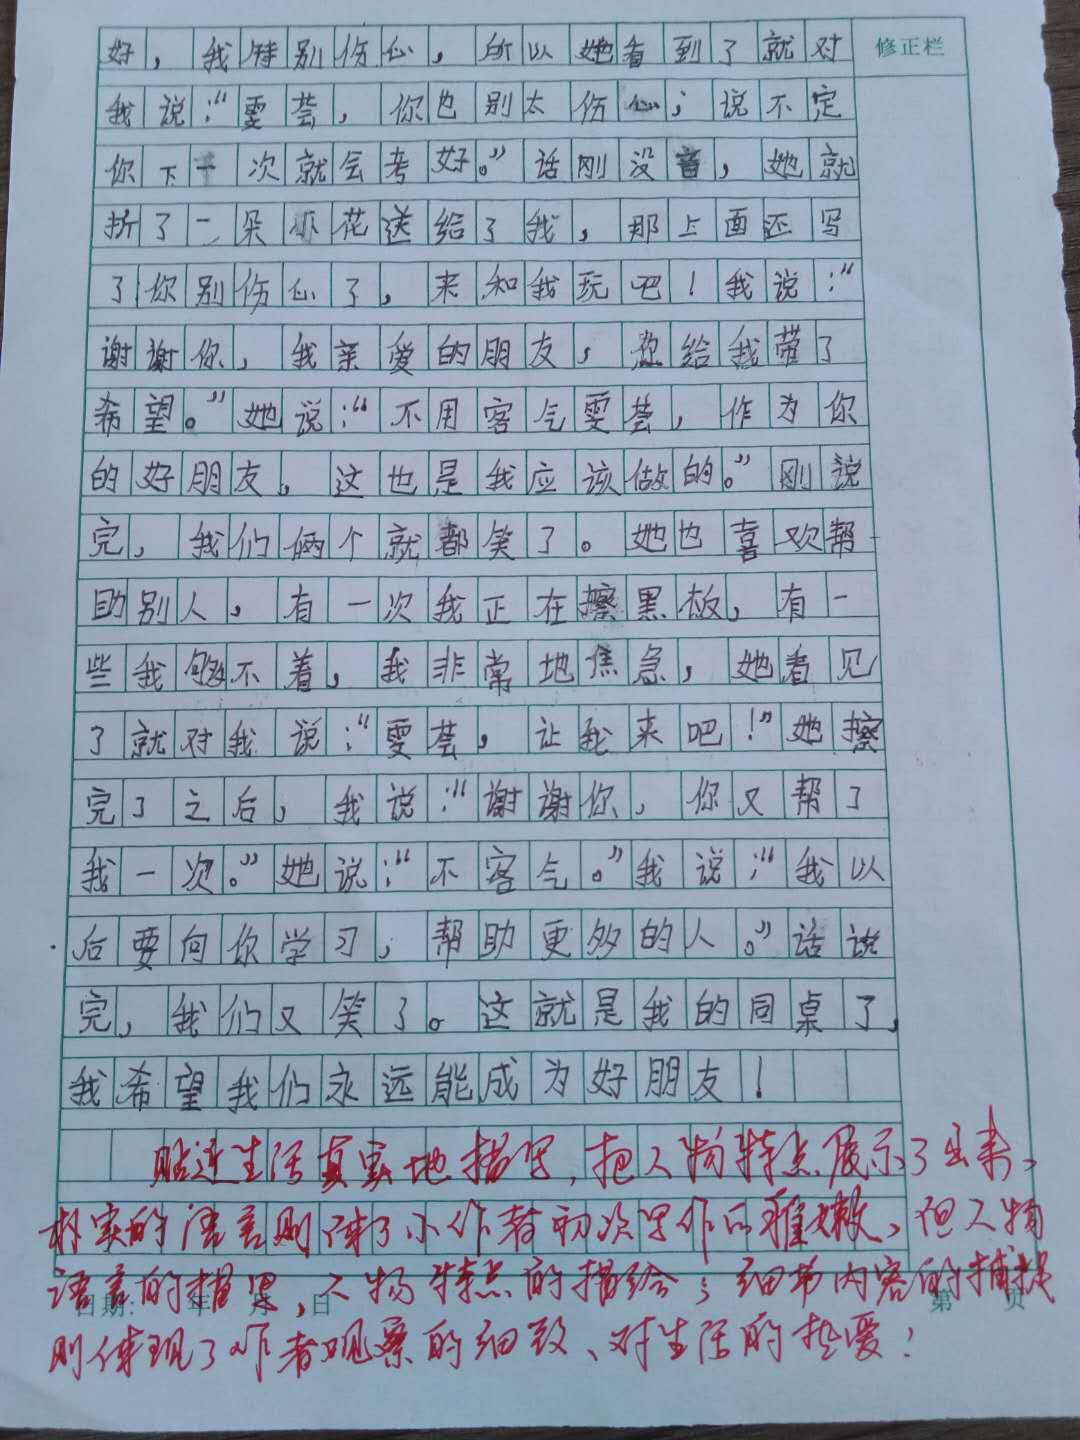 好，我特别伤心，所以她看到了就对
修正栏
我说：“雯荟，你也别太伤心；说不定
你下一次就会考好。”话刚没音，她就
折了一朵小花送给了我，那上面还写
了你别伤心了，来和我玩吧！我说：“
谢谢你，我亲爱的朋友，您给我带了
希望。”她说：“不用客气雯荟，作为你
的好朋友，这也是我应该做的。”刚说
完，我们俩个就都笑了。她也喜欢帮
助别人，有一次我正在擦黑板，有一
些我够不着，我非常地焦急，她看见
了就对我说：“雯荟，让我来吧！”她擦
完了之后，我说：“谢谢你，你又帮了
我一次。”她说：“不客气。”我说：“我以
后要向你学习，帮助更多的人。”话说
完，我们又笑了。这就是我的同桌了，
我希望我们永远能成为好朋友！
贴近生活真实地描写，把人物特点展示了出来、
朴实的语言则体了小作者初次写作的稚嫩、但人物
语言的描写，人物特点的描绘；细节内容的捕捉
日期： 年 月 日 第 页
则体现了作者观察的细致、对生活的热爱！